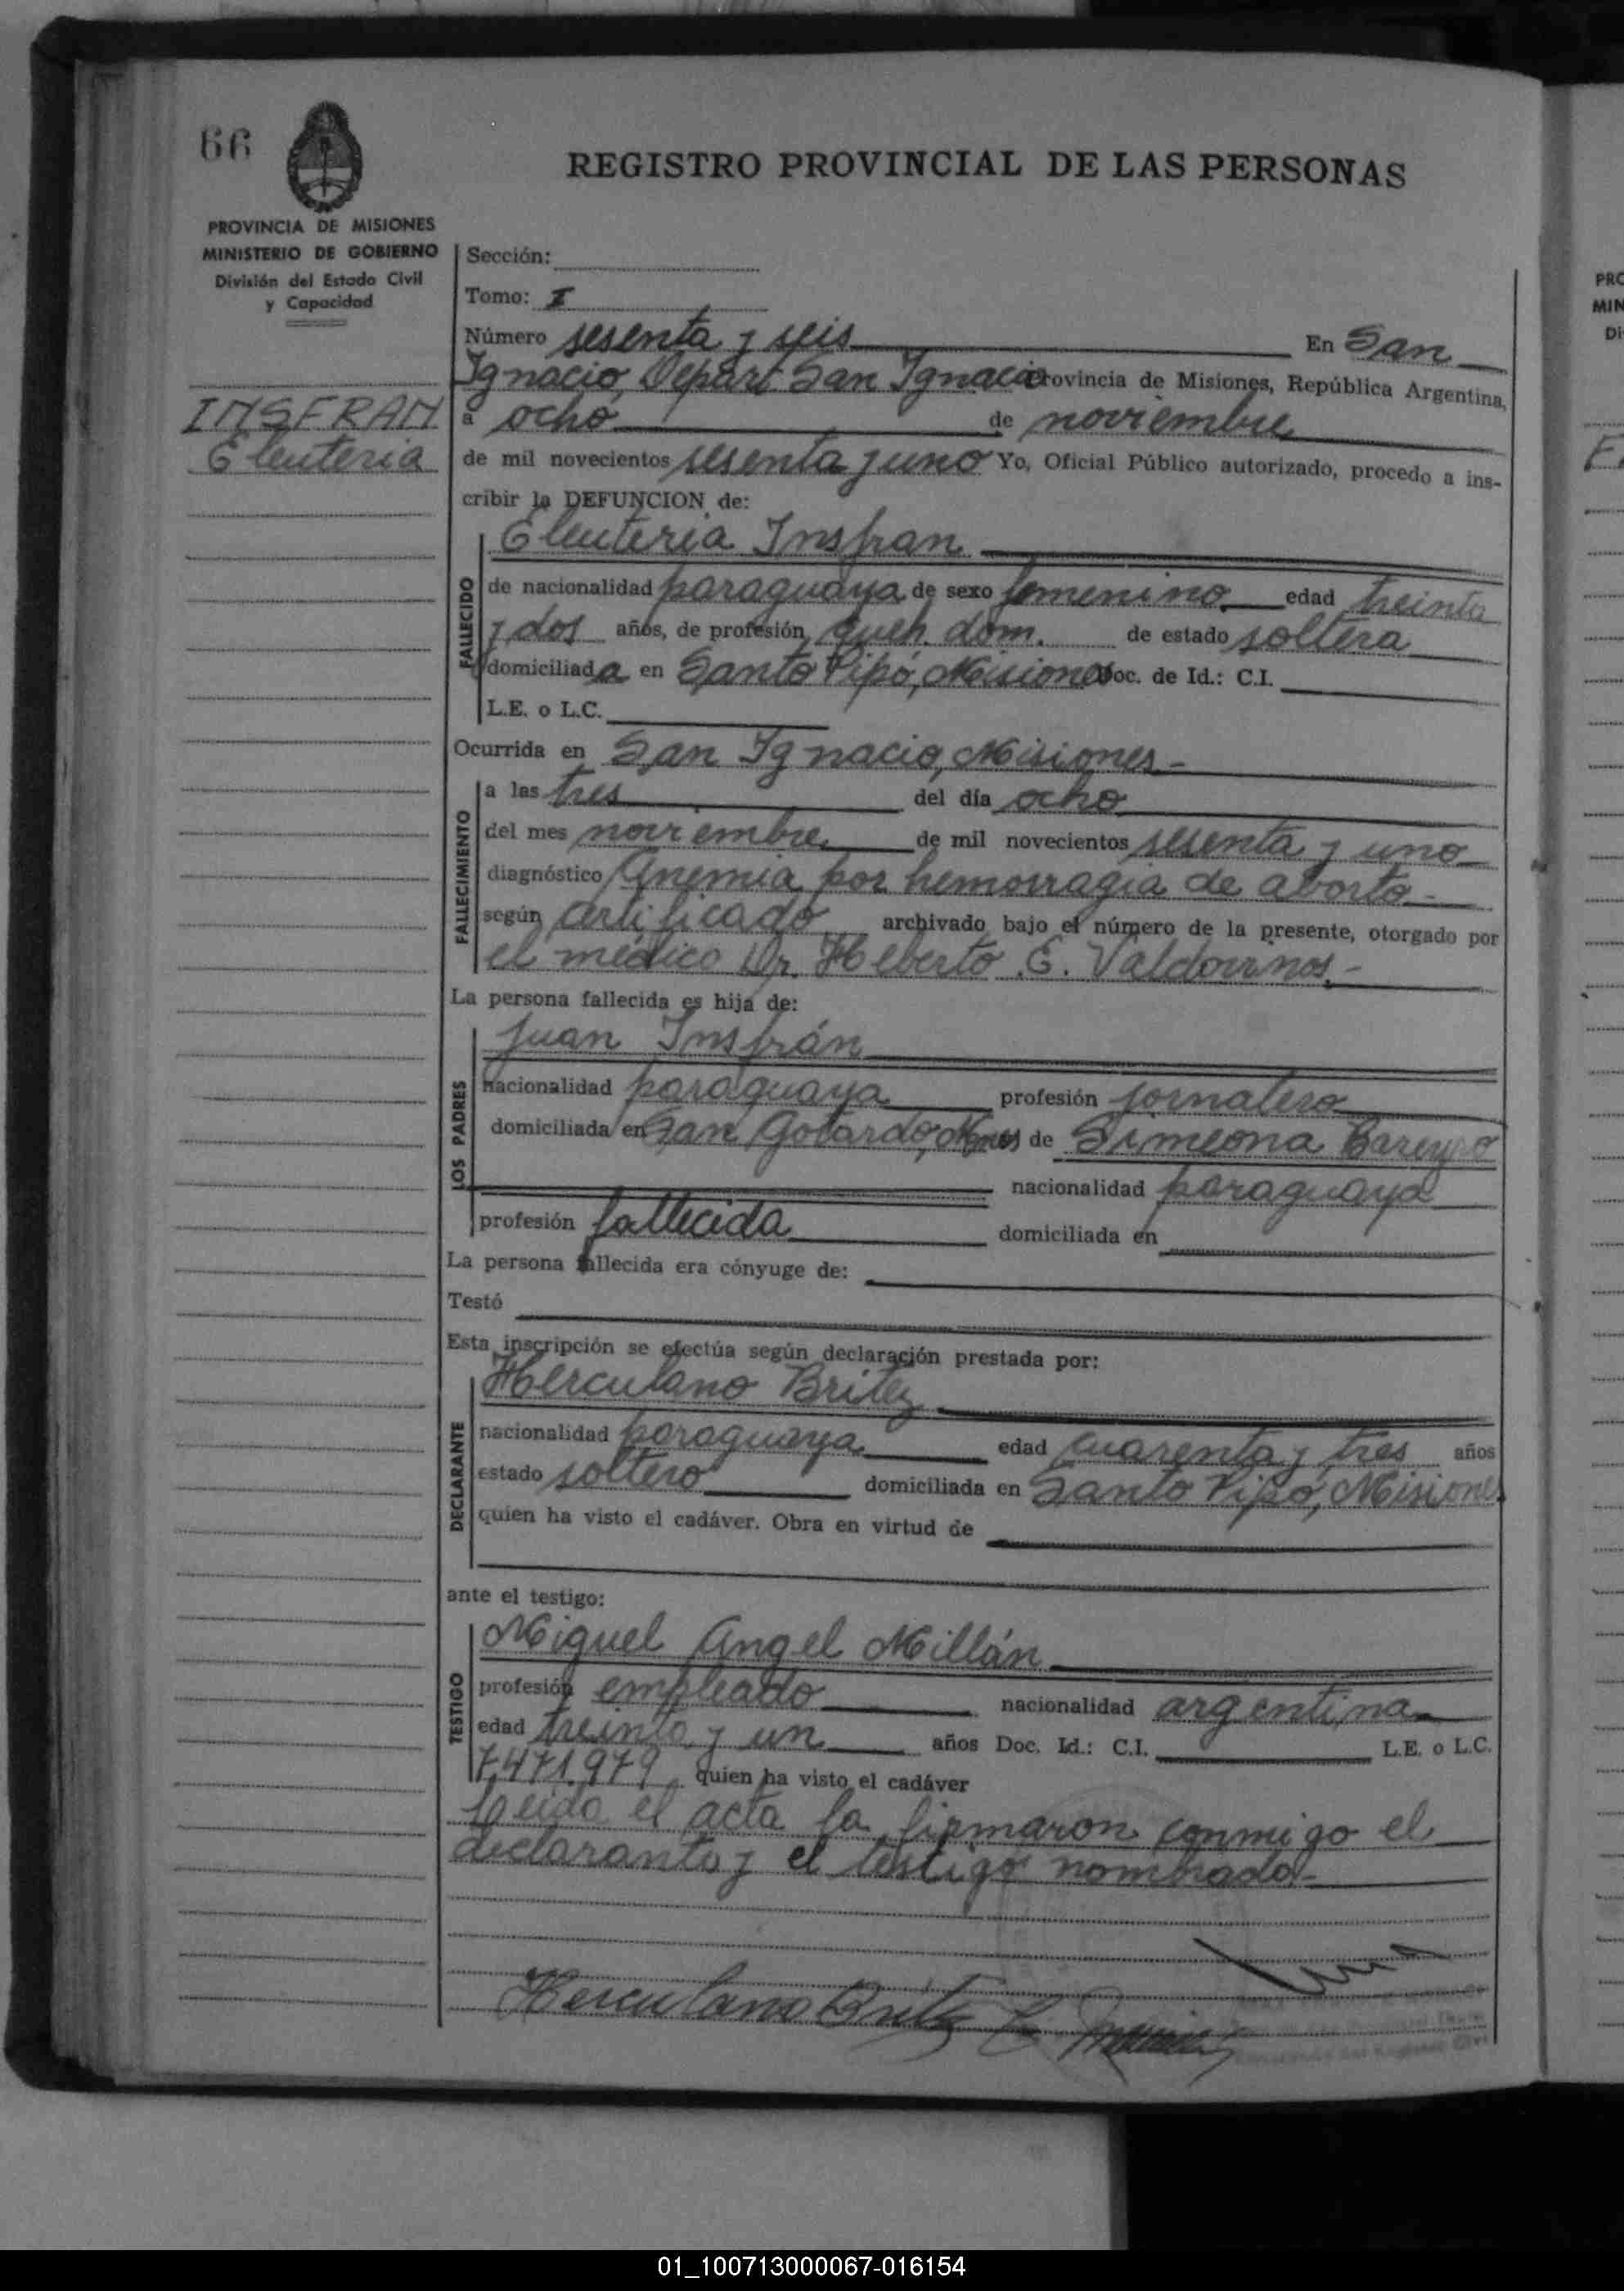 66
REGISTRO PROVINCIAL DE LAS PERSONAS
PROVINCIA DE MISIONES
MINISTERIO DE GOBIERNO
División del Estado Civil
y Capacidad
INSFRAN
Eleuteria
Sección:
Tomo: I
Número sesenta y seis En San
Ignacio, Depart. San Ignacio Provincia de Misiones, República Argentina,
a ocho de noviembre
de mil novecientos sesenta y uno Yo, Oficial Público autorizado, procedo a ins-
cribir la DEFUNCION de:
FALLECIDO
Eleuteria Insfran
de nacionalidad paraguaya de sexo femenino edad treinta
y dos años, de profesión queh. dom. de estado soltera
domiciliada en Santo Pipó, Misiones Doc. de Id.: C.I.
L.E. o L.C.
Ocurrida en San Ignacio, Misiones-
FALLECIMIENTO
a las tres del día ocho
del mes noviembre de mil novecientos sesenta y uno
diagnóstico Anemia por hemorragia de aborto-
según certificado archivado bajo el número de la presente, otorgado por
el médico Dr. Heberto E.
La persona fallecida es hija de:
LOS PADRES
Juan Insfrán
nacionalidad paraguaya profesión jornalero
domiciliada en San Gotardo, de Simeona
nacionalidad paraguaya
profesión fallecida domiciliada en
La persona fallecida era cónyuge de:
Testó
Esta inscripción se efectúa según declaración prestada por:
DECLARANTE
Herculano Britez
nacionalidad paraguaya edad cuarenta y tres años
estado soltero domiciliada en Santo Pipó, Misiones
quien ha visto el cadáver. Obra en virtud de
ante el testigo:
TESTIGO
Miguel Angel Millán
profesión empleado nacionalidad argentina
edad treinta y un años Doc. Id.: C.I. L.E. o L.C.
7.471.979 quien ha visto el cadáver
Leída el acta la firmaron conmigo el
declarante y el testigo nombrado-
Herculano Britez
PRO
MIN
Di
01_100713000067-016154